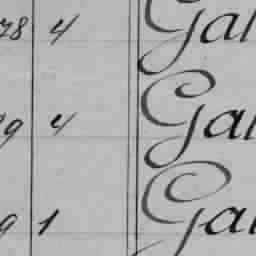 78 4 Gal
9 4 Gal
9 1 Gal